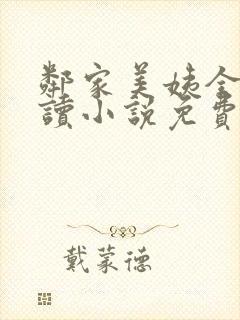 鄰家美姨全
讀小說免費
戴蒙德